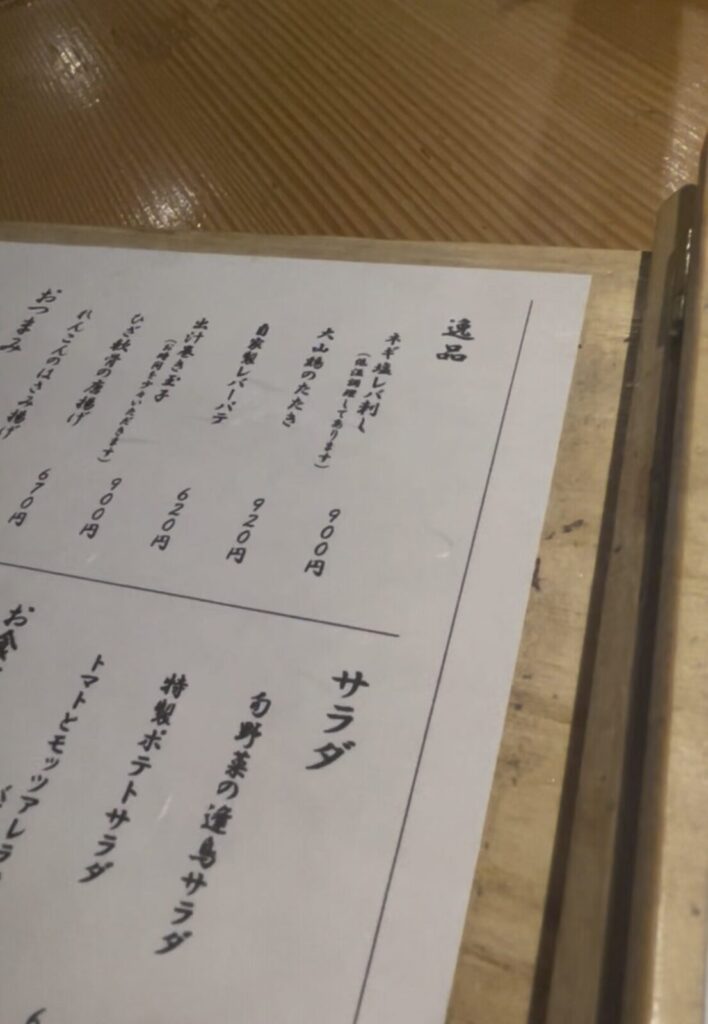 逸品
ネギ塩レバ刺し
(低温調理してあります)
900円
大山鶏のたたき
920円
自家製レバーパテ
620円
出汁巻き玉子
(お時間を少々いただきます)
900円
ひざ軟骨の唐揚げ
670円
れんこんのはさみ揚げ
おつまみ
サラダ
旬野菜の逢鳥サラダ
特製ポテトサラダ
トマトとモッツアレラ
お食